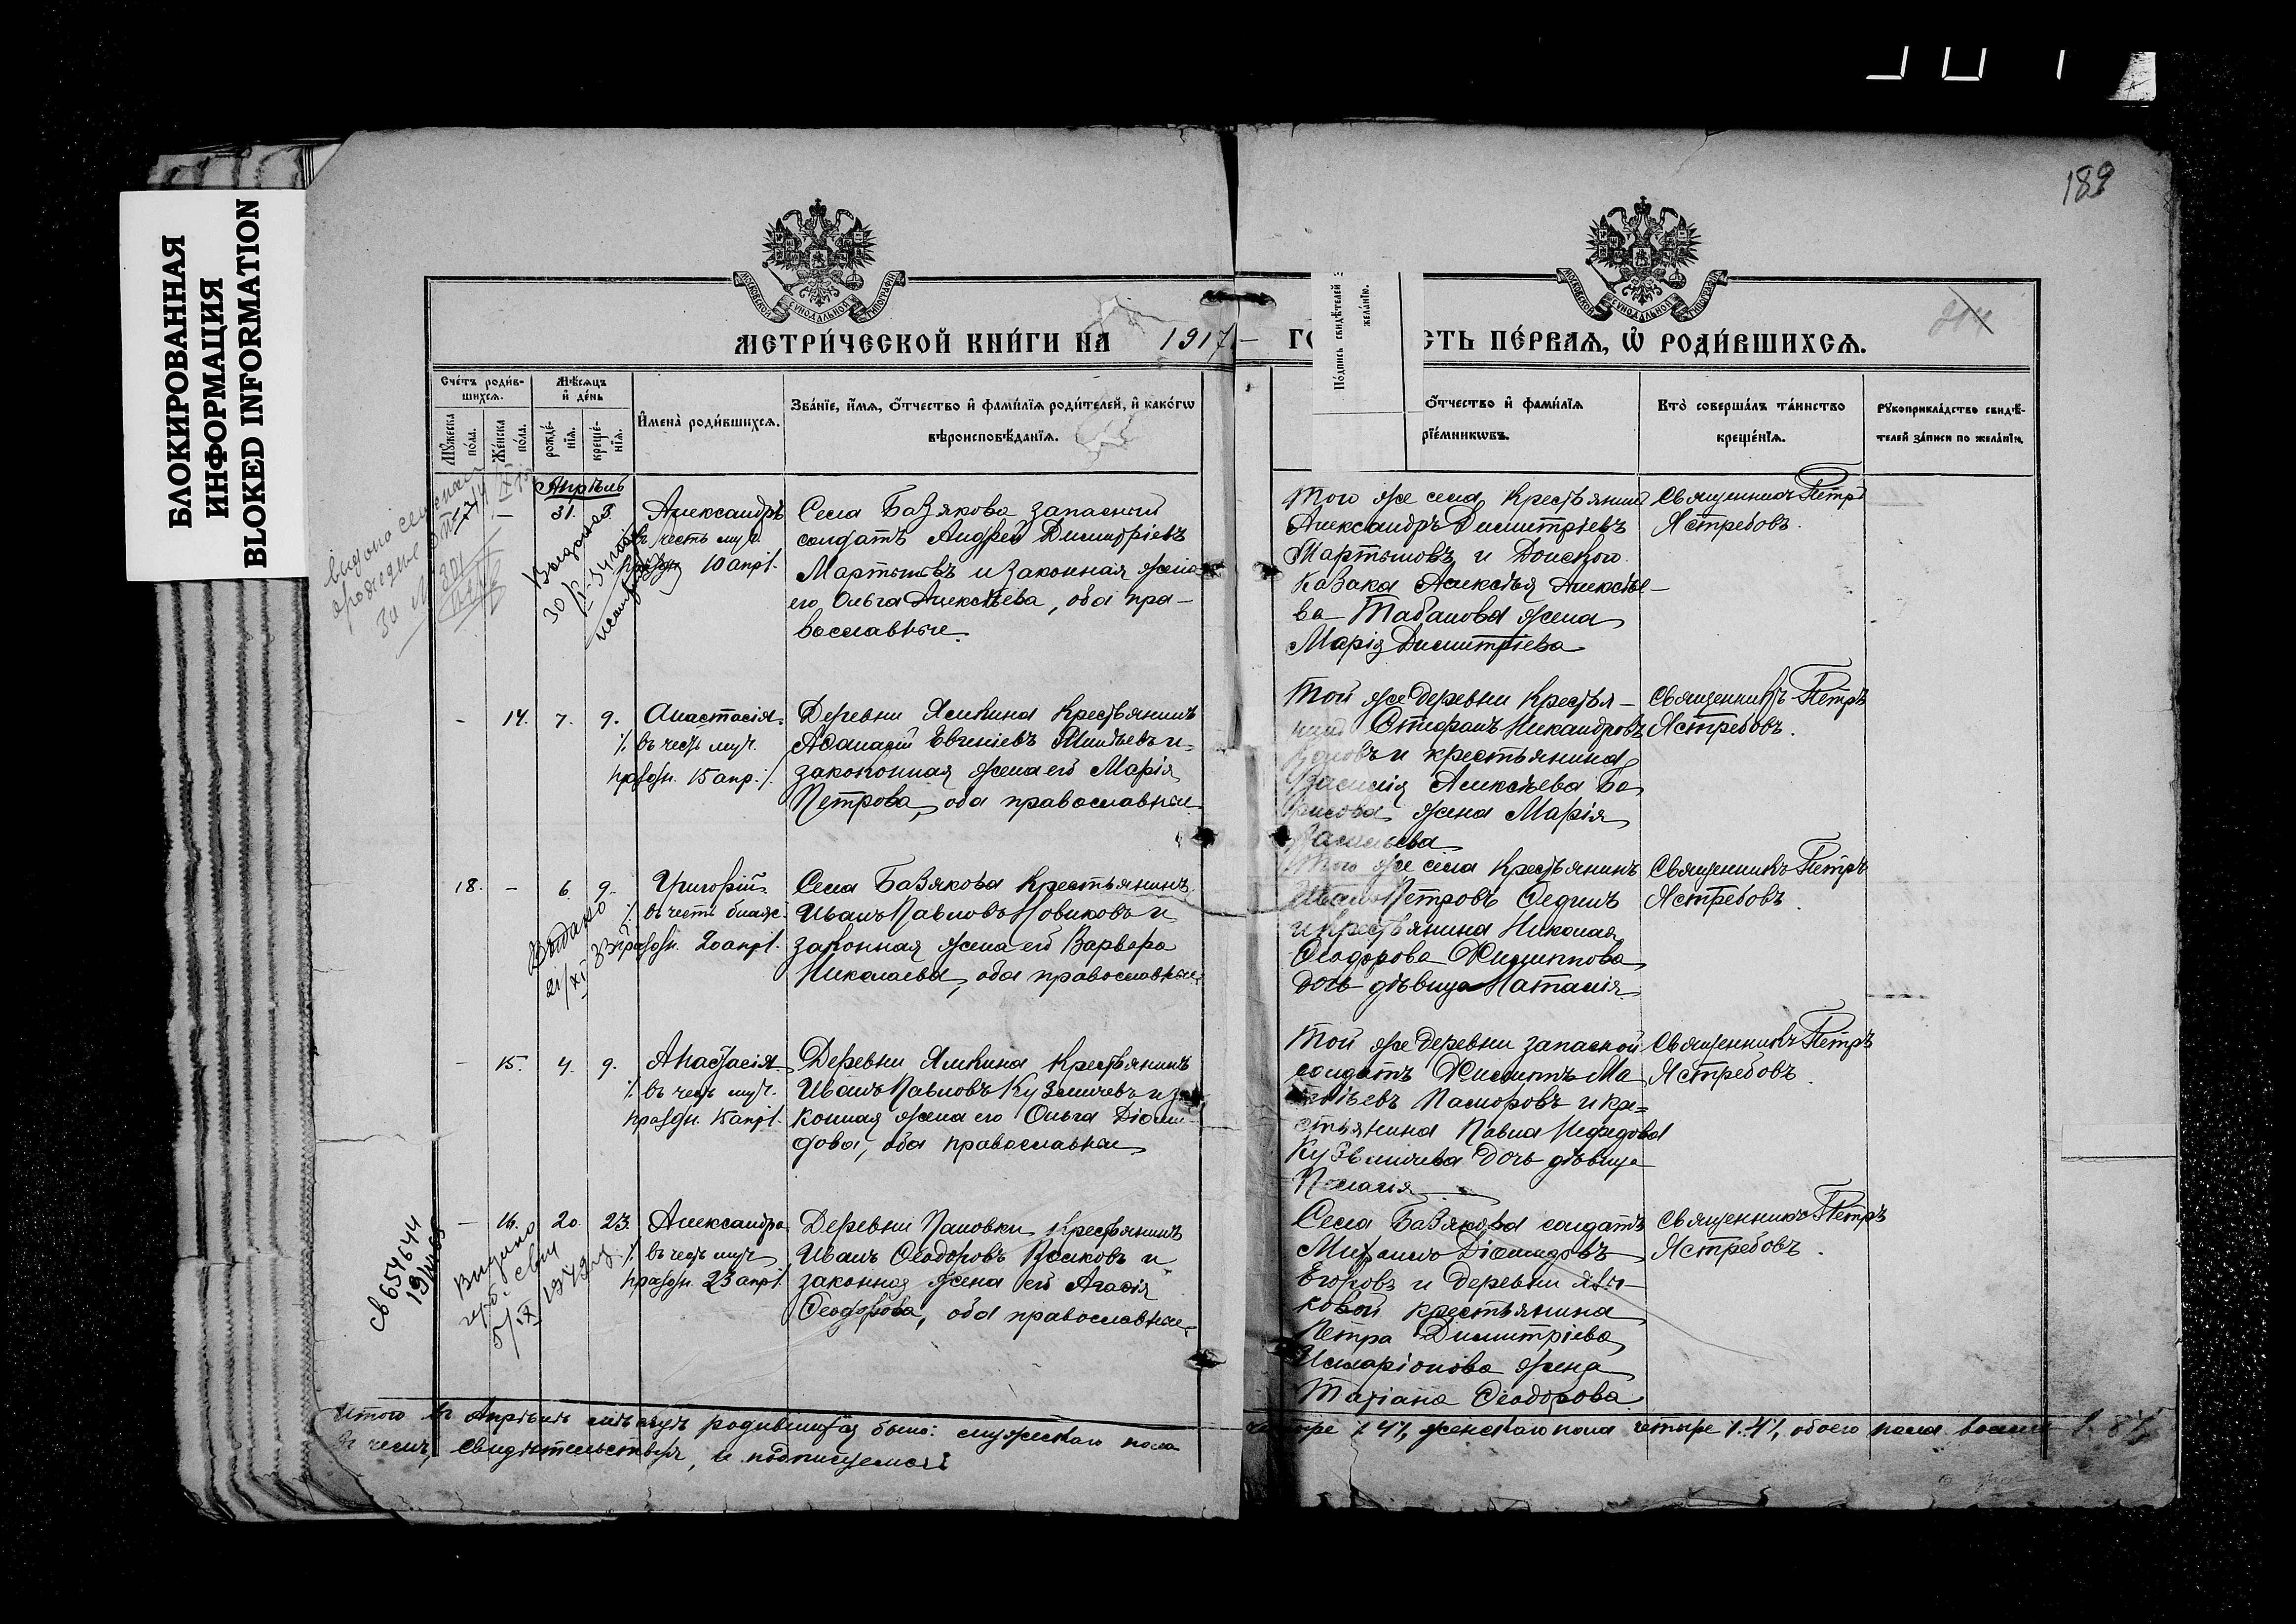 БЛОКИРОВАННАЯ
ИНФОРМАЦИЯ
BLOKED INFORMATION
189
МЕТРИ́ЧЕСКОЙ КНИ́ГИ НА 1917
СТЬ ПЕ́РВАЯ, Ѡ҆ РОДИ́ВШИХСЯ.
Сче́тъ роди́в-
шихся.
Мѣ́сяцъ
и҆ де́нь
Мꙋ́жеска
по́ла.
Же́нска
по́ла.
рожде́-
нїя.
креще́-
нїя.
И҆мена̀ роди́вшихся.
Зва́нїе, и҆́мя, ѻ҆́тчество и҆ фами́лїя роди́телей, и҆ како́гѡ
вѣроисповѣ́данїя.
По́дпись свидѣ́телей
жела́нїю.
ѻ҆́тчество и҆ фами́лїя
рїе́мникѡвъ.
Кто̀ соверша́лъ та́инство
креще́нїя.
Рꙋкоприкла́дство свидѣ́-
телей за́писи по жела́нїю.
Апрѣль
31. 3.
Александръ
въ честь муч.
праздн. 10 апрѣл.
Села Базякова запасный
солдатъ Андрей Димитріевъ
Мартыновъ и законная жена
его Ольга Алексѣева, оба пра-
вославные.
Того же села крестьянин
Александръ Димитріевъ
Мартыновъ и Донского
казака Алексѣя Алексѣе-
ва Табакова жена
Марія Димитріева
Священникъ Петръ
Ястребовъ.
- 14. 7. 9.
Анастасія
въ честь муч.
праздн. 15 апр.
Деревни Ямкина крестьянинъ
Аѳанасій Евгеніевъ и
законная жена его Марія
Петрова, оба православные
Той же деревни крестья-
нинъ Стефанъ Никандровъ
и крестьянина
Алексѣева Бо
рисова жена Марія
Васильева
Священникъ Петръ
Ястребовъ.
18. - 6. 9.
Григорій
въ честь
праздн. 20 апрѣл.
Села Базякова крестьянинъ
Иванъ Павловъ Новиковъ и
законная жена его Варвара
Николаева, оба православные
Того же села крестьянинъ
Иванъ Петровъ
и крестьянина Николая
Ѳеодорова Филиппова
дочь дѣвица Наталія
Священникъ Петръ
Ястребовъ.
Выдано
21/XI 33
- 15. 4. 9.
Анастасія
въ честь муч.
праздн. 15 апрѣл.
Деревни Ямкина крестьянинъ
Иванъ Павловъ Кузмичевъ и за
конная жена его Ольга Діоми-
дова, оба православные
Той же деревни запасной
солдатъ Филиппъ Ма
и кре-
стьянина Павла Нефедова
Кузьмичева дочь дѣвица
Пелагія
Священникъ Петръ
Ястребовъ.
- 16. 20. 23.
Александра
въ честь муч
праздн. 23 апрѣл.
Деревни крестьянинъ
Иванъ Ѳеодоровъ и
законная жена его Агаѳія
Ѳеодорова, оба православные
Села Базякова солдатъ
Михаилъ Діомидовъ
Егоровъ и деревни
ковой крестьянина
Петра Димитріева
Иларіонова жена
Татіана Ѳеодорова
Священникъ Петръ
Ястребовъ.
Св 654644
Выдано
5/IX
Итого въ Апрѣлѣ мѣсяцѣ родившихся было: мужского пола
четыре /.4./, женского пола четыре /.4./, обоего пола восемь /.8./
въ чемъ, свидѣтельствуя, и подписуемся: